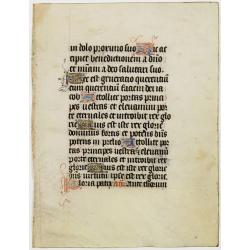 in dolo proximo suo Hic ac
cipiet benedictionem a dño
et miam a deo salutari suo
Hec est generatio querentiũ
eum querentiũ faciem dei ia
cob Attollite portas princi
pes vestras et elevamini por
te eternales et introibit rex gło
rie Quis est iste rex glorie
dominus fortis et potens dñs
potens in prelio Attollite por
tas principes vestras et elevamini
porte eternales et introibit rex
glorie Quis est iste rex glorie
dñs virtutũ ipse est rex glorie
Gloria patri